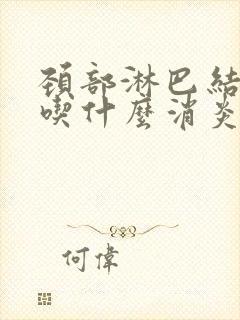 頚部淋巴結
喫什麼消炎
何偉